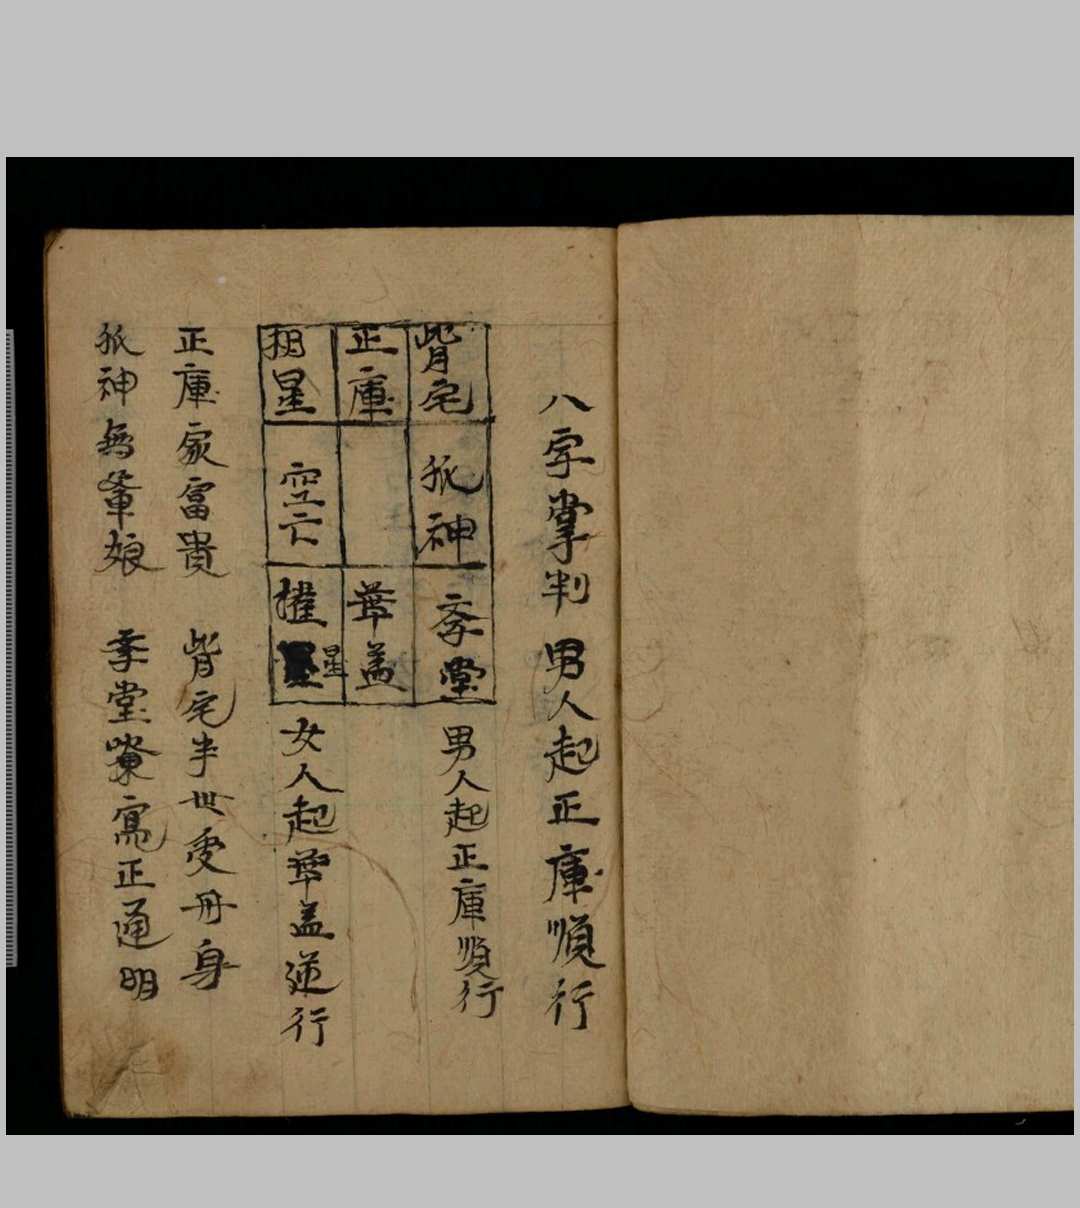 八字掌判 男人起正庫順行
背宅 孤神 孝堂 男人起正庫順行
正庫 華盖
相星 空亡 權星 女人起華盖逆行
正庫家富貴 背宅半世受丹身
孤神無爺娘 孝堂寫正通明